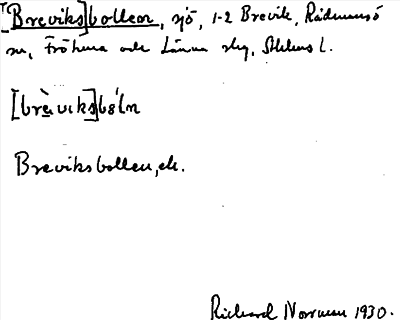 [Breviks]bollen, sjö, 1-2 Brevik, Rådmansö
sn, Fröhuna och Länna slg, Sthlms l.
[brèviks]bɷ́ln
Breviksbollen, ek.
Richard Norman 1930.